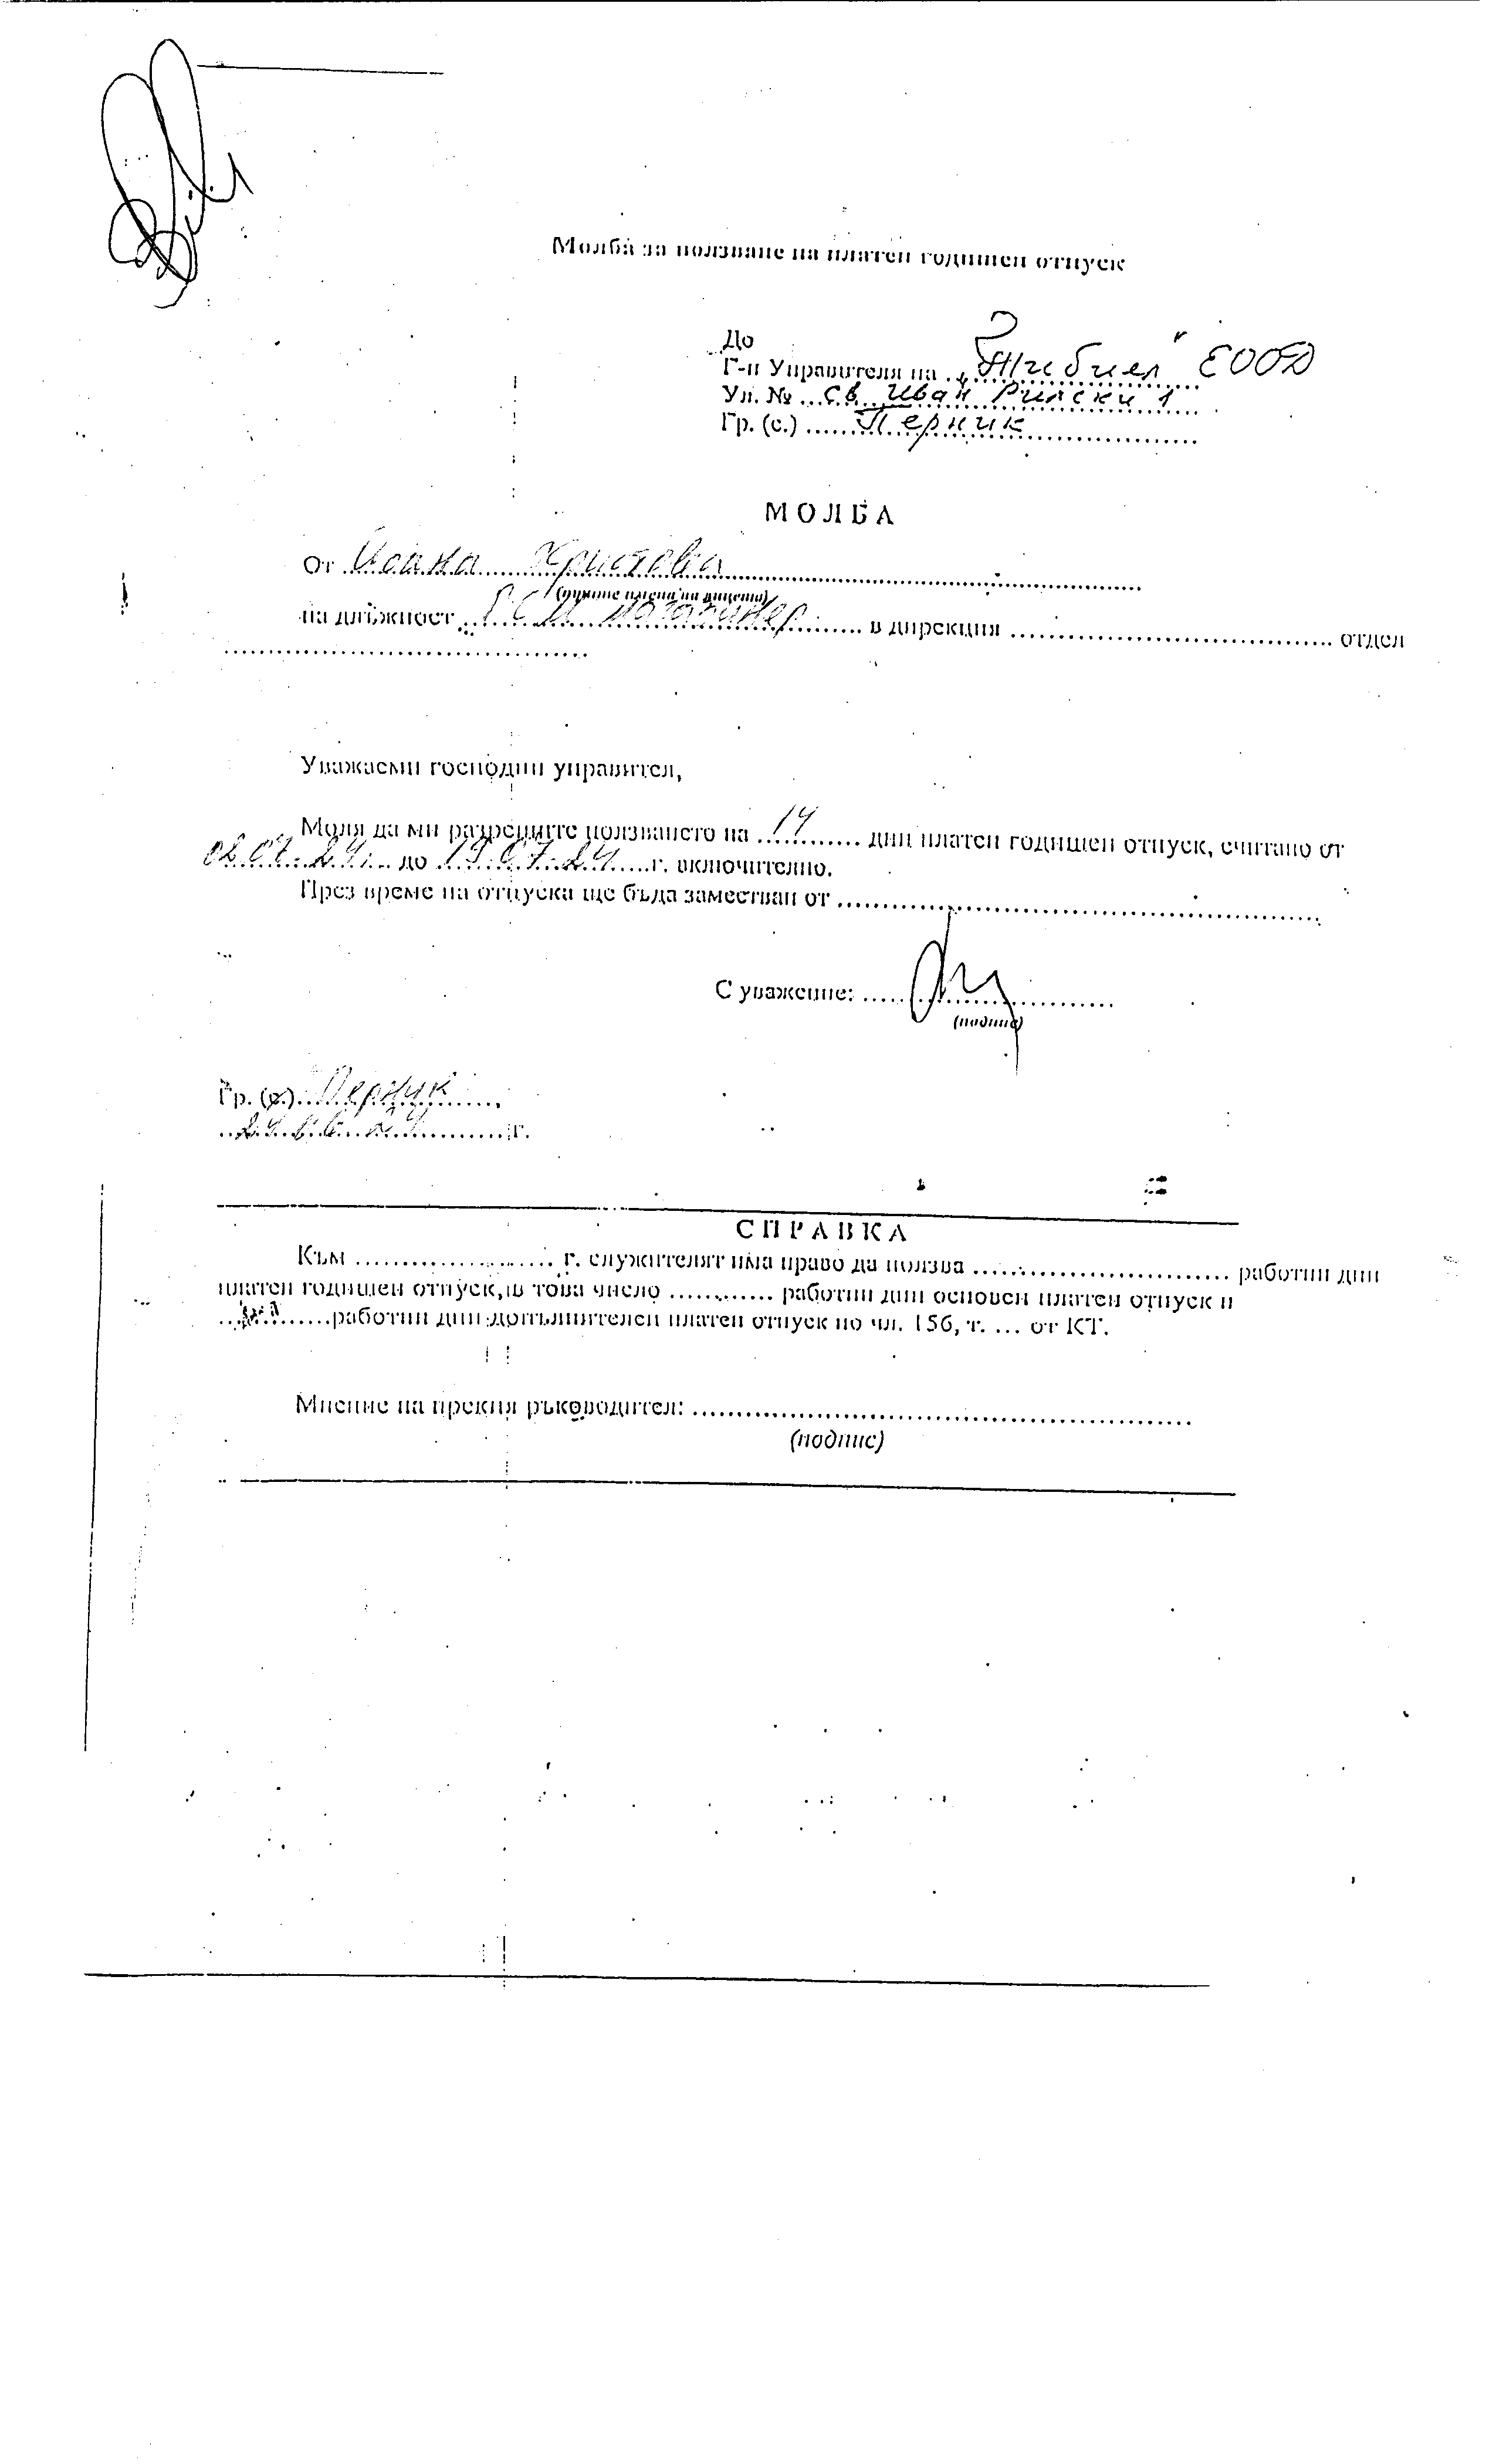 Молба за ползване на платен годишен отпуск
До
Г-н Управителя на „Жибиел" ЕООД
Ул. № Св. Иван Рилски 1
Гр. (с.) Перник
МОЛБА
От Иоана Христова
(трите имена на лицето)
на длъжност в дирекция отдел
Уважаеми господин управител,
Моля да ми разрешите ползването на 14 дни платен годишен отпуск, считано от
02.07.24 до 19.07.24 г. включително.
През време на отпуска ще бъда заместван от
С уважение:
(подпис)
Гр. (с.) Перник
24.06.24 г.
СПРАВКА
Към г. служителят има право да ползва работни дни
платен годишен отпуск, в това число работни дни основен платен отпуск и
работни дни допълнителен платен отпуск по чл. 156, т. ... от КТ.
Мнение на прекия ръководител:
(подпис)